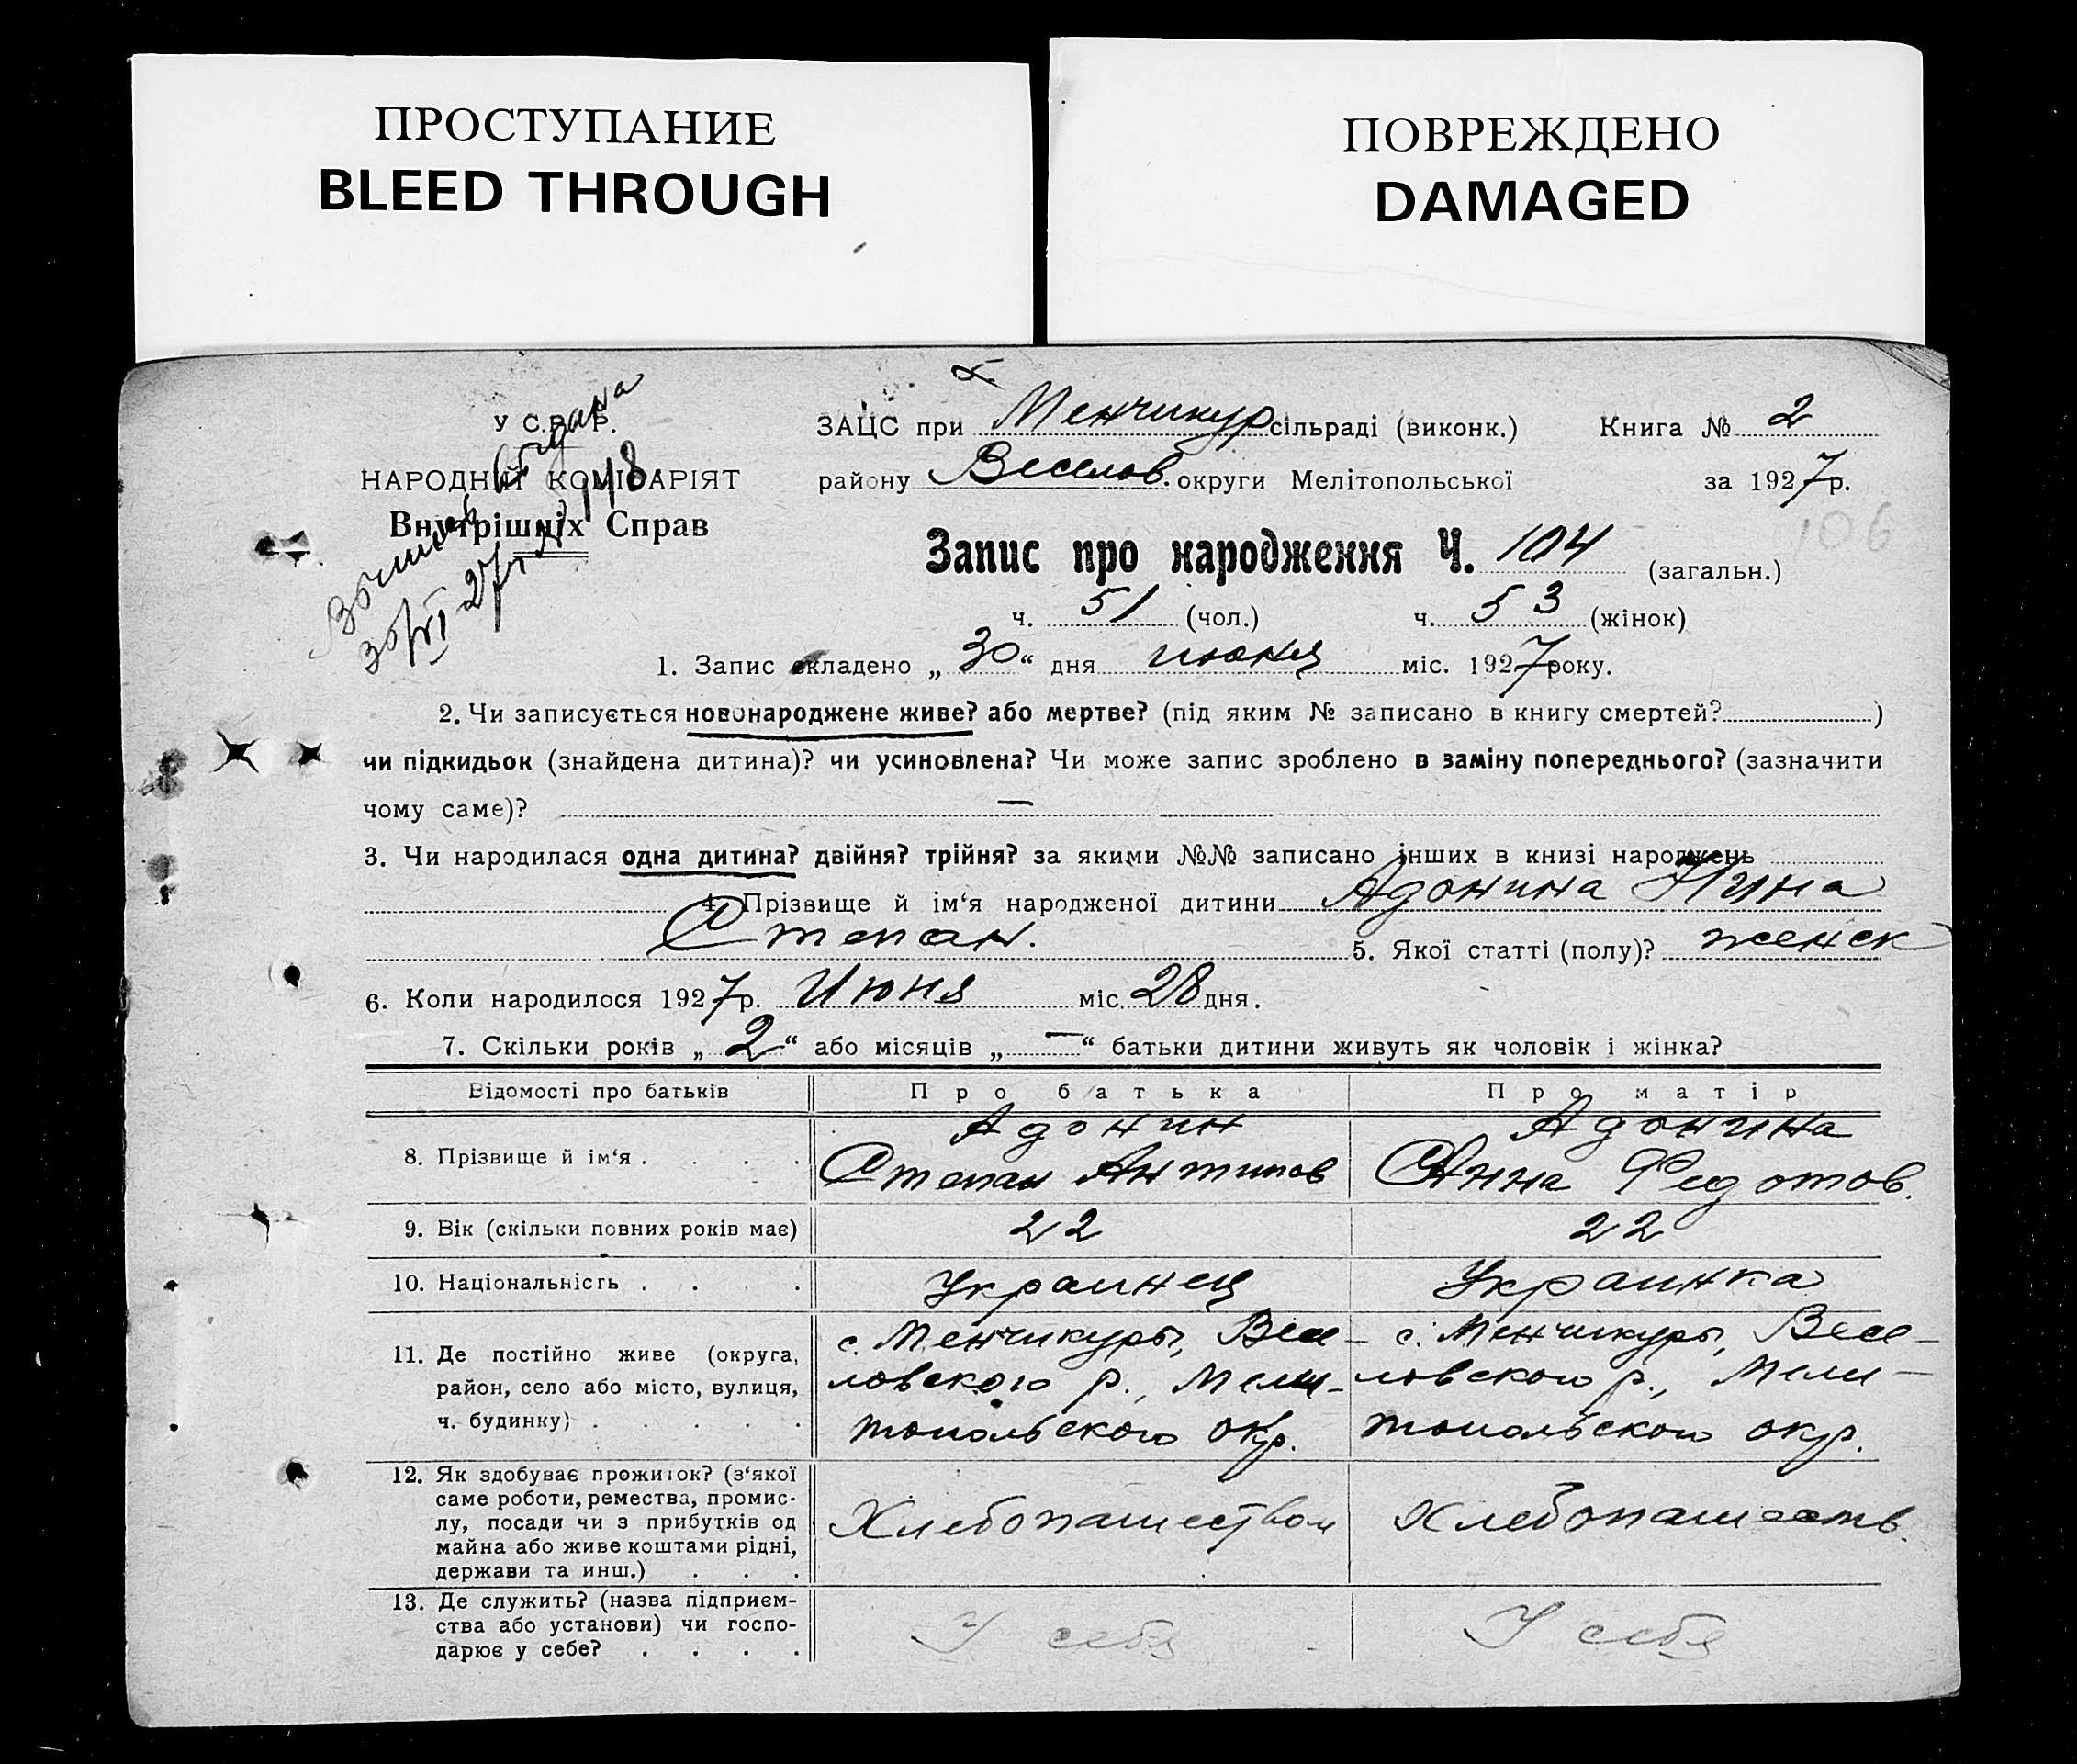 ПРОСТУПАНИЕ
BLEED THROUGH
ПОВРЕЖДЕНО
DAMAGED
У С.Р.Р.
НАРОДНИЙ КОМІСАРІЯТ
Внутрішніх Справ
выдана
30/VI 27 г. № 148
ЗАЦС при Менчикур сільраді (виконк.) Книга № 2
району Веселов. округи Мелітопольської за 1927 р.
106
Запис про народження Ч. 104 (загальн.)
ч. 51 (чол.) ч. 53 (жінок)
1. Запис складено „ 30 “ дня июня міс. 1927 року.
2. Чи записується новонароджене живе? або мертве? (під яким № записано в книгу смертей? )
чи підкидьок (знайдена дитина)? чи усиновлена? Чи може запис зроблено в заміну попереднього? (зазначити
чому саме)? —
3. Чи народилася одна дитина? двійня? трійня? за якими №№ записано інших в книзі народжень
4. Прізвище й ім‘я народженої дитини Адонина Нина
Степан. 5. Якої статті (полу)? женск
6. Коли народилося 1927 р. Июня міс. 28 дня.
7. Скільки років „ 2 “ або місяців „ — “ батьки дитини живуть як чоловік і жінка?
Відомості про батьків Про батька Про матір
Адонин Адонина
8. Прізвище й ім‘я . . . . Степан Антипов Анна Федотов.
9. Вік (скільки повних років має) 22 22
10. Національність . . . Украинец Украинка
11. Де постійно живе (округа, с. Менчикуры, Весе- с. Менчикуры, Весе-
район, село або місто, вулиця, ловского р., Мели- ловского р., Мели-
ч. будинку) . . . . . топольского окр. топольского окр.
12. Як здобуває прожиток? (з‘якої
саме роботи, ремества, промис-
лу, посади чи з прибутків од Хлебопашеством Хлебопашеств.
майна або живе коштами рідні,
держави та инш.) . . .
13. Де служить? (назва підприєм-
ства або установи) чи госпо- У себя У себя
дарює у себе? . . . .